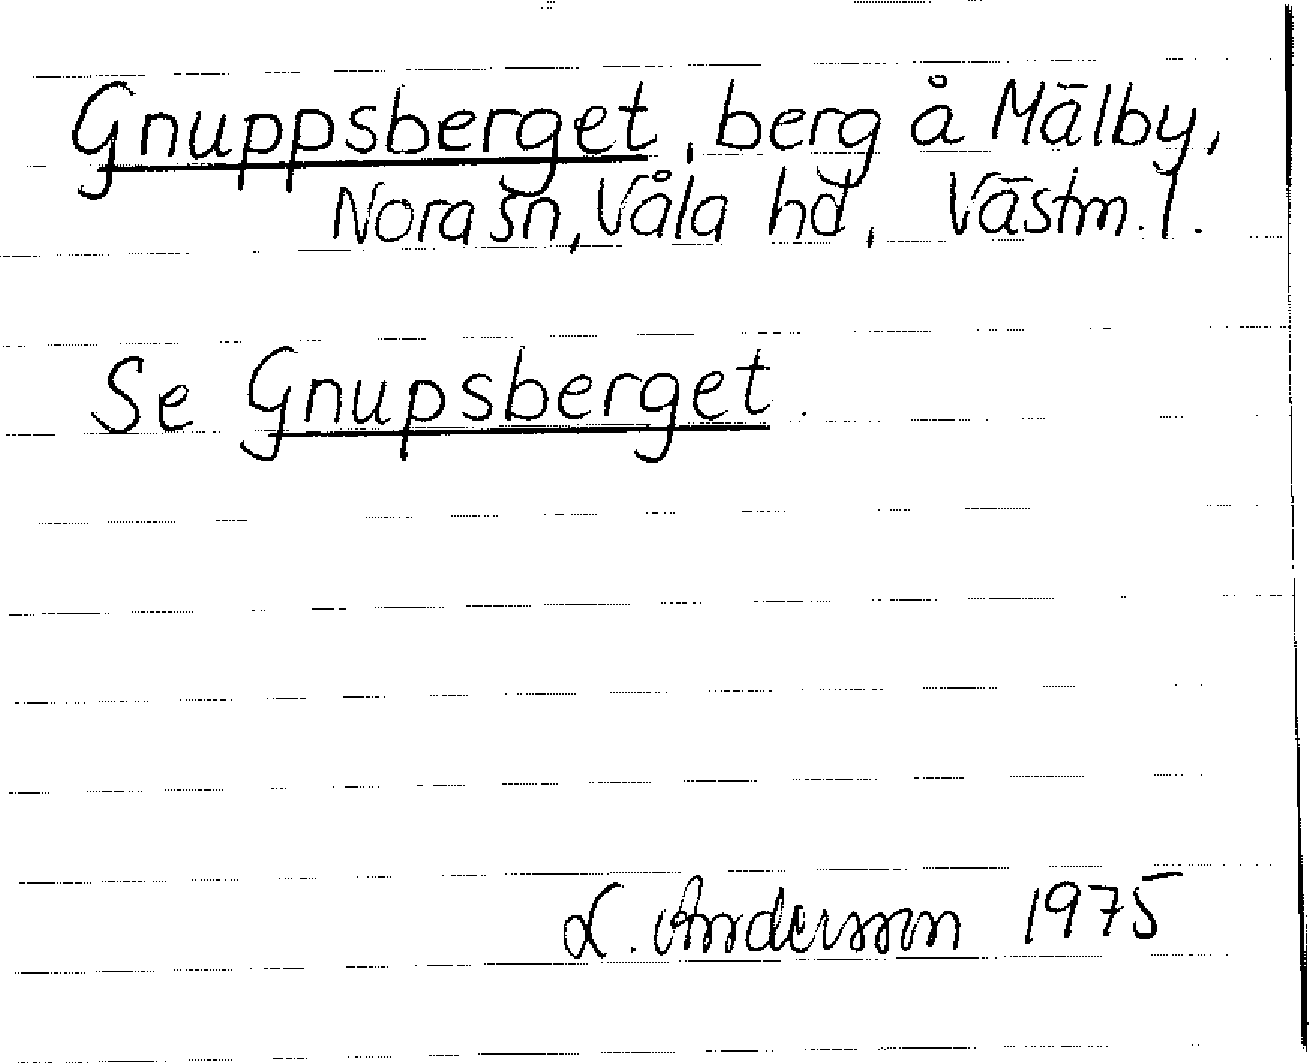 Gnuppsberget, berg å Mälby,
Nora sn, Våla hd, Västm. l.
Se Gnupsberget.
L. Andersson 1975